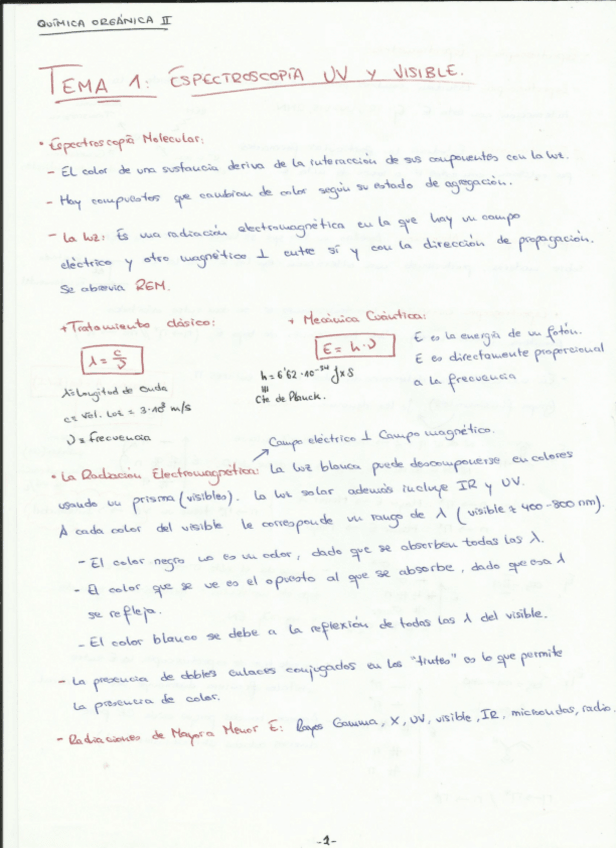 QUÍMICA ORGÁNICA II
TEMA 1: ESPECTROSCOPÍA UV Y VISIBLE.
• Espectroscopía Molecular:
- El color de una sustancia deriva de la interacción de sus componentes con la luz.
- Hay compuestos que cambian de color según su estado de agregación.
- La luz: Es una radiación electromagnética en la que hay un campo
eléctrico y otro magnético ⊥ entre sí y con la dirección de propagación.
Se abrevia REM.
+ Tratamiento clásico:
λ = c/ν
λ: Longitud de Onda
c = Vel. Luz = 3·10⁸ m/s
ν = frecuencia
+ Mecánica Cuántica:
E = h·ν
h = 6'62·10⁻³⁴ J x s
Cte de Planck.
E es la energía de un fotón.
E es directamente proporcional
a la frecuencia
Campo eléctrico ⊥ Campo magnético.
• La Radiación Electromagnética: La luz blanca puede descomponerse en colores
usando un prisma (visibles). La luz solar además incluye IR y UV.
A cada color del visible le corresponde un rango de λ (visible ≠ 400-800 nm).
- El color negro no es un color, dado que se absorben todas las λ.
- El color que se ve es el opuesto al que se absorbe, dado que esa λ
se refleja.
- El color blanco se debe a la reflexión de todas las λ del visible.
- La presencia de dobles enlaces conjugados en los "tintes" es lo que permite
la presencia de color.
- Radiaciones de Mayor a Menor E: Rayos Gamma, X, UV, visible, IR, microondas, radio.
-1-